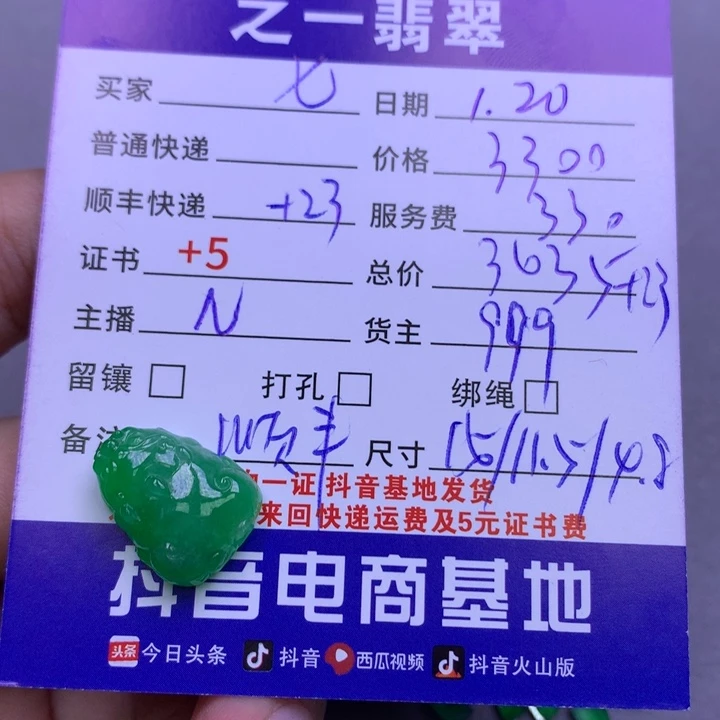 之一翡翠
买家 七 日期 1.20
普通快递 价格 3300
顺丰快递 +23 服务费 330
证书 +5 总价 3635+23
主播 N 货主 999
留镶 打孔 绑绳
备注 顺丰 尺寸 15/11.5/4.8
一证 抖音基地发货
来回快递运费及5元证书费
抖音电商基地
头条 今日头条 抖音 西瓜视频 抖音火山版